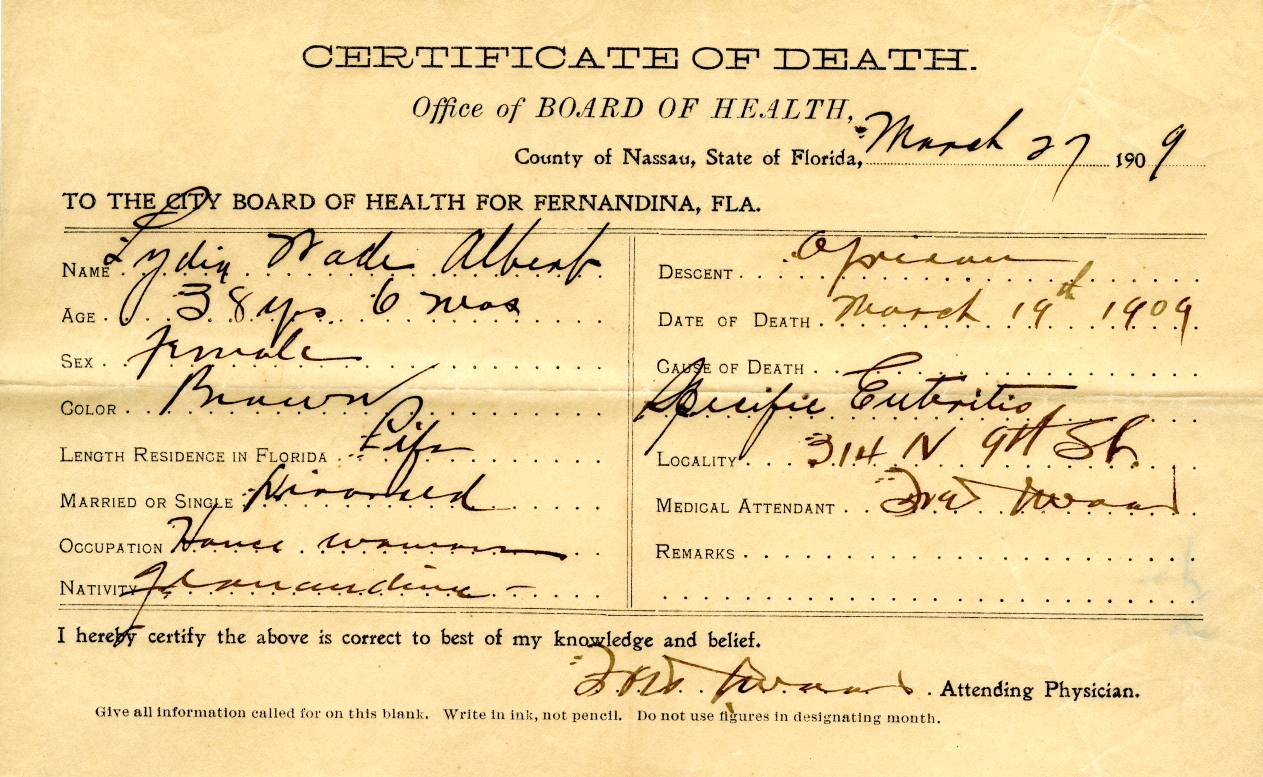 CERTIFICATE OF DEATH.
Office of BOARD OF HEALTH,
County of Nassau, State of Florida, March 27 1909
TO THE CITY BOARD OF HEALTH FOR FERNANDINA, FLA.
NAME Lydia Wade Albert
AGE 38 yrs 6 mos
SEX Female
COLOR Brown
LENGTH RESIDENCE IN FLORIDA Life
MARRIED OR SINGLE Divorsed
OCCUPATION House woman
NATIVITY Fernandina
DESCENT African
DATE OF DEATH March 19th 1909
CAUSE OF DEATH
Specific Enteritis
LOCALITY 314 N 9th St.
MEDICAL ATTENDANT
REMARKS
I hereby certify the above is correct to best of my knowledge and belief.
Attending Physician.
Give all information called for on this blank. Write in ink, not pencil. Do not use figures in designating month.